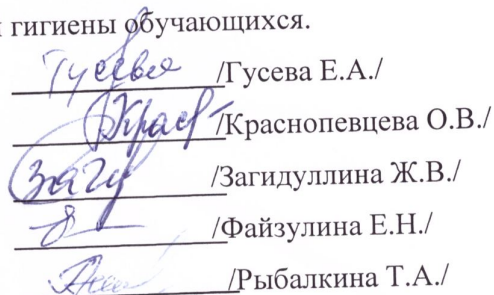 гигиены обучающихся.
Гусева /Гусева Е.А./
Крас /Краснопевцева О.В./
Загу /Загидуллина Ж.В./
/Файзулина Е.Н./
/Рыбалкина Т.А./